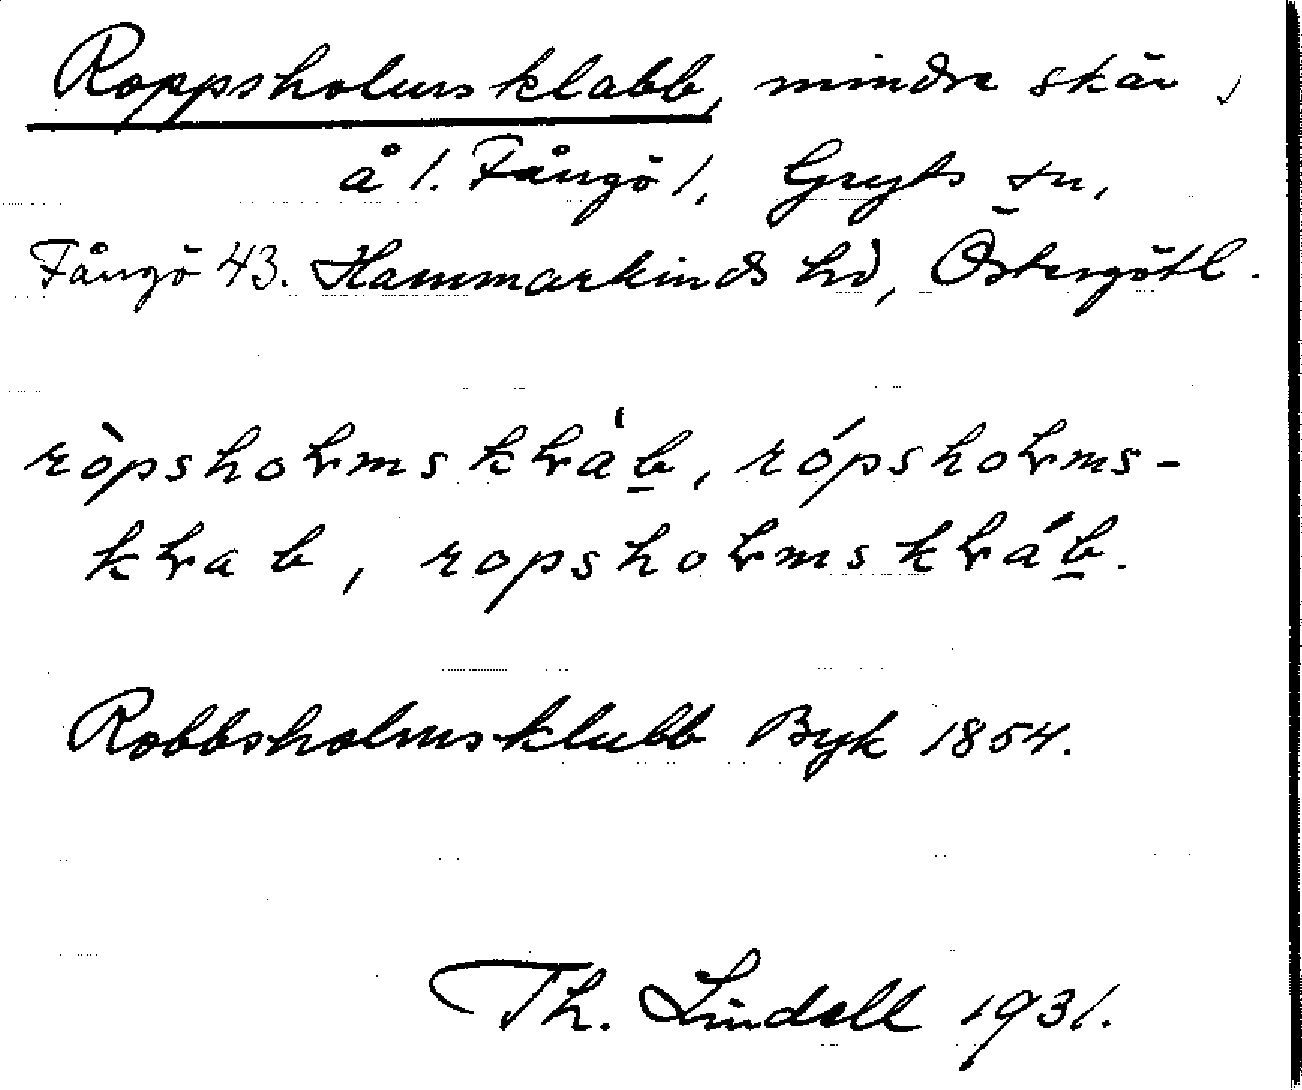 Roppsholmsklabb, mindre skär,
å 1. Fångö 1, Gryts sn,
Fångö 43. Hammarkinds hd, Östergötl.
ròpshoɫmskɫa̍b̲, rópshoɫms-
kɫab, ropshoɫmskɫáb̲.
Robbsholmsklubb Byk 1854.
Th. Lindell 1931.